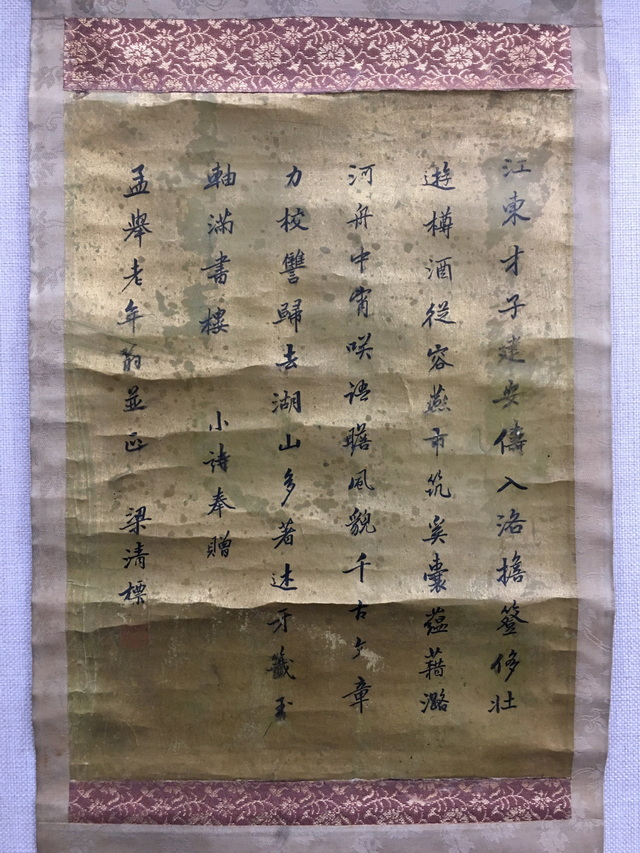 江東才子建安儔入洛擔簦侈壯
遊樽酒從容燕市筑奚囊蘊藉潞
河舟中宵咲語瞻風貌千古文章
力校讐歸去湖山多著述牙籤玉
軸滿書樓 小詩奉贈
孟舉老年翁並正 梁清標